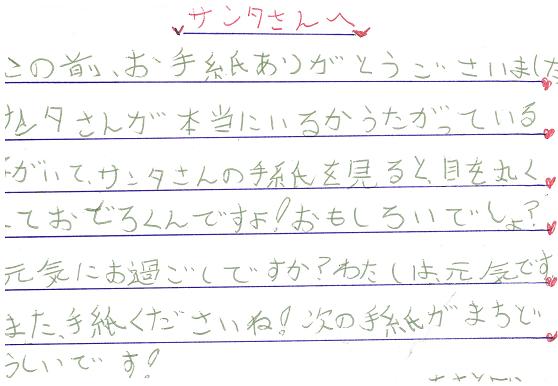 サンタさんへ
この前、お手紙ありがとうございました
サンタさんが本当にいるかうたがっている
がいて、サンタさんの手紙を見ると、目を丸く
ておどろくんですよ!おもしろいでしょ?
元気にお過ごしですか?わたしは、元気です
また、手紙くださいね!次の手紙がまちど
うしいです!